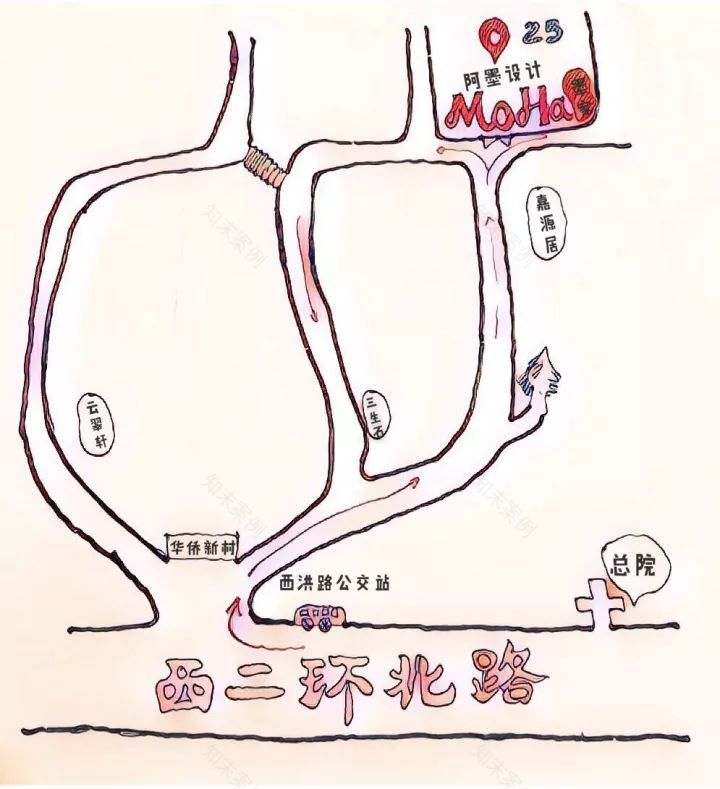 25
阿墨设计
MoHa
墨家
嘉源居
云翠轩
三生石
华侨新村
西洪路公交站
总院
西二环北路
知末案例
知末案例
知末案例
知末案例
知末案例
知末案例